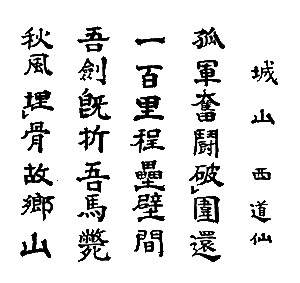 城山 西道仙
孤軍奮闘破圍還
一百里程壘壁間
吾劍既折吾馬斃
秋風埋骨故鄉山